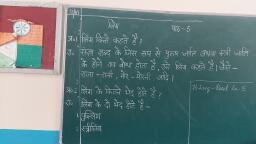 लिंग पाठ-5
प्र०1 लिंग किसे कहते हैं?
उ० संज्ञा शब्द के जिस रूप से पुरुष जाति अथवा स्त्री जाति
के होने का बोध होता है, उसे लिंग कहते हैं। जैसे -
राजा-रानी, मोर-मोरनी आदि।
प्र०2 लिंग के कितने भेद होते हैं?
उ० लिंग के दो भेद होते हैं-
पुल्लिंग
स्त्रीलिंग